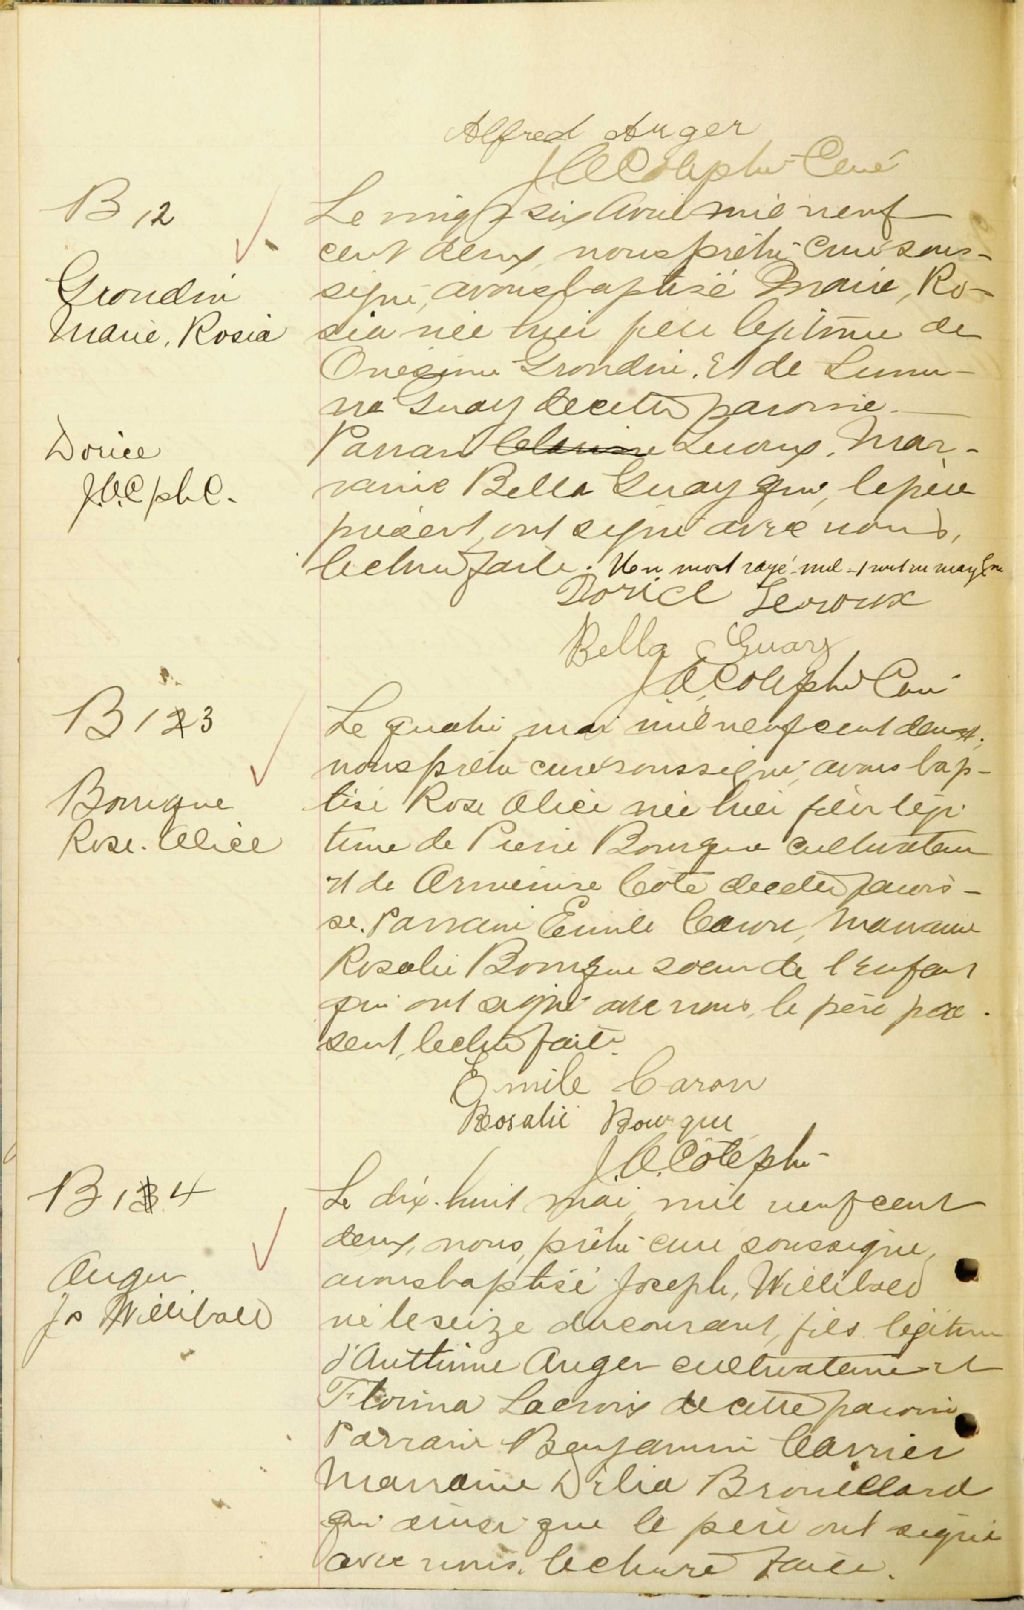 Alfred Auger
J.A. Côté ptre Curé
B 12
Le vingt six avril mil neuf
cent deux, nous prêtre curé sous-
signé, avons baptisé Marie, Ro-
Grondin
Marie, Rosia
sia née hier fille légitime de
Onésime Grondin. Et de
na Guay de cette paroisse.
Dorice
J.A.C. ptre C.
Parrain Clarine Leroux, Mar-
raine Bella Guay qui, le père
présent, ont signé avec nous,
lecture faite. Un mot rayé nul
Doricl Leroux
Bella Guay
J.A. Côté ptre Curé
B 123
Le quatre mai mil neuf cent deux,
nous prêtre curé soussigné, avons bap-
Bourque
Rose. Alice
tisé Rose Alice née hier fille légi
time de Pierre Bourque cultivateur
et de Arménise Côté de cette parois-
se. Parrain Emile Caron, Marraine
Rosalie Bourque soeur de l'enfant
qui ont signé avec nous, le père pré
sent, lecture faite.
Emile Caron
Rosalie Bourque
J.A. Côté ptre
B 134
Le dix-huit mai mil neuf cent
deux, nous, prêtre curé soussigné,
Auger
Js Willibald
avons baptisé Joseph, Willibald
né le seize du courant, fils légitime
d'Anthime Auger cultivateur et
Florina Lacroix de cette paroisse
Parrain Benjamin Carrier
Marraine Délia Brouillard
qui ainsi que le père ont signé
avec nous. lecture faite.